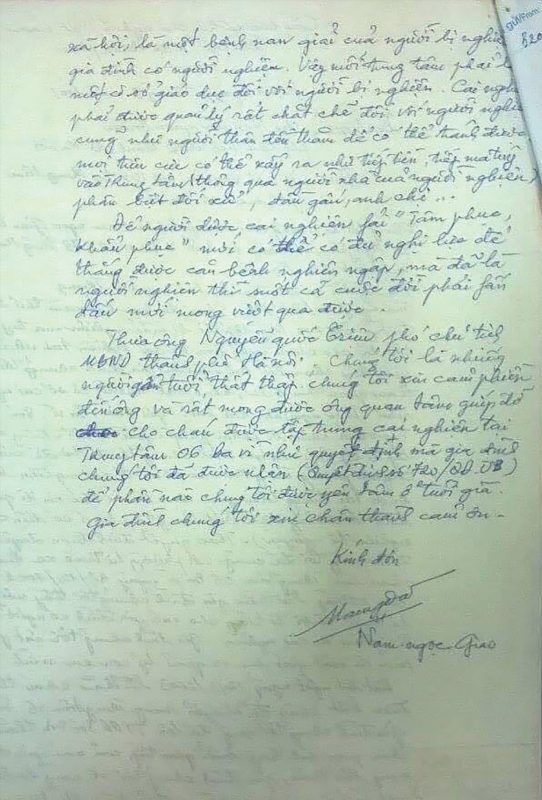 gửi/From:
B20
xã hội, là một bệnh nan giải của người bị nghiện
gia đình có người nghiện. Vậy mỗi trung tâm phải là
một cơ sở giáo dục đối với người bị nghiện. Cai nghiện
phải được quản lý rất chặt chẽ đối với người nghiện
cũng như người thân đến thăm để có thể tránh được
mọi tiêu cực có thể xảy ra như tiếp tiền, tiếp ma túy
vào Trung tâm (thông qua người nhà của người nghiện)
phân biệt đối xử, đầu gấu, anh chị ...
Để người được cai nghiện fải "Tâm phục,
khẩu phục" mới có thể có đủ nghị lực để
thắng được căn bệnh nghiện ngập, mà đã là
người nghiện thì một cả cuộc đời phải fấn
đấu mới mong vượt qua được.
Thưa ông Nguyễn quốc Triệu phó chủ tịch
UBND thành phố Hà nội. Chúng tôi là những
người già tuổi, thất thập chúng tôi xin cảm phiền
đến ông và rất mong được ông quan tâm giúp đỡ
cho cháu được tập trung cai nghiện tại
Trung tâm 06 Ba vì như quyết định mà gia đình
chúng tôi đã được nhận (Quyết định số 720/QĐ UB)
để phần nào chúng tôi được yên tâm ở tuổi già.
Gia đình chúng tôi xin chân thành cảm ơn.
Kính đơn
Nam ngọc Giao